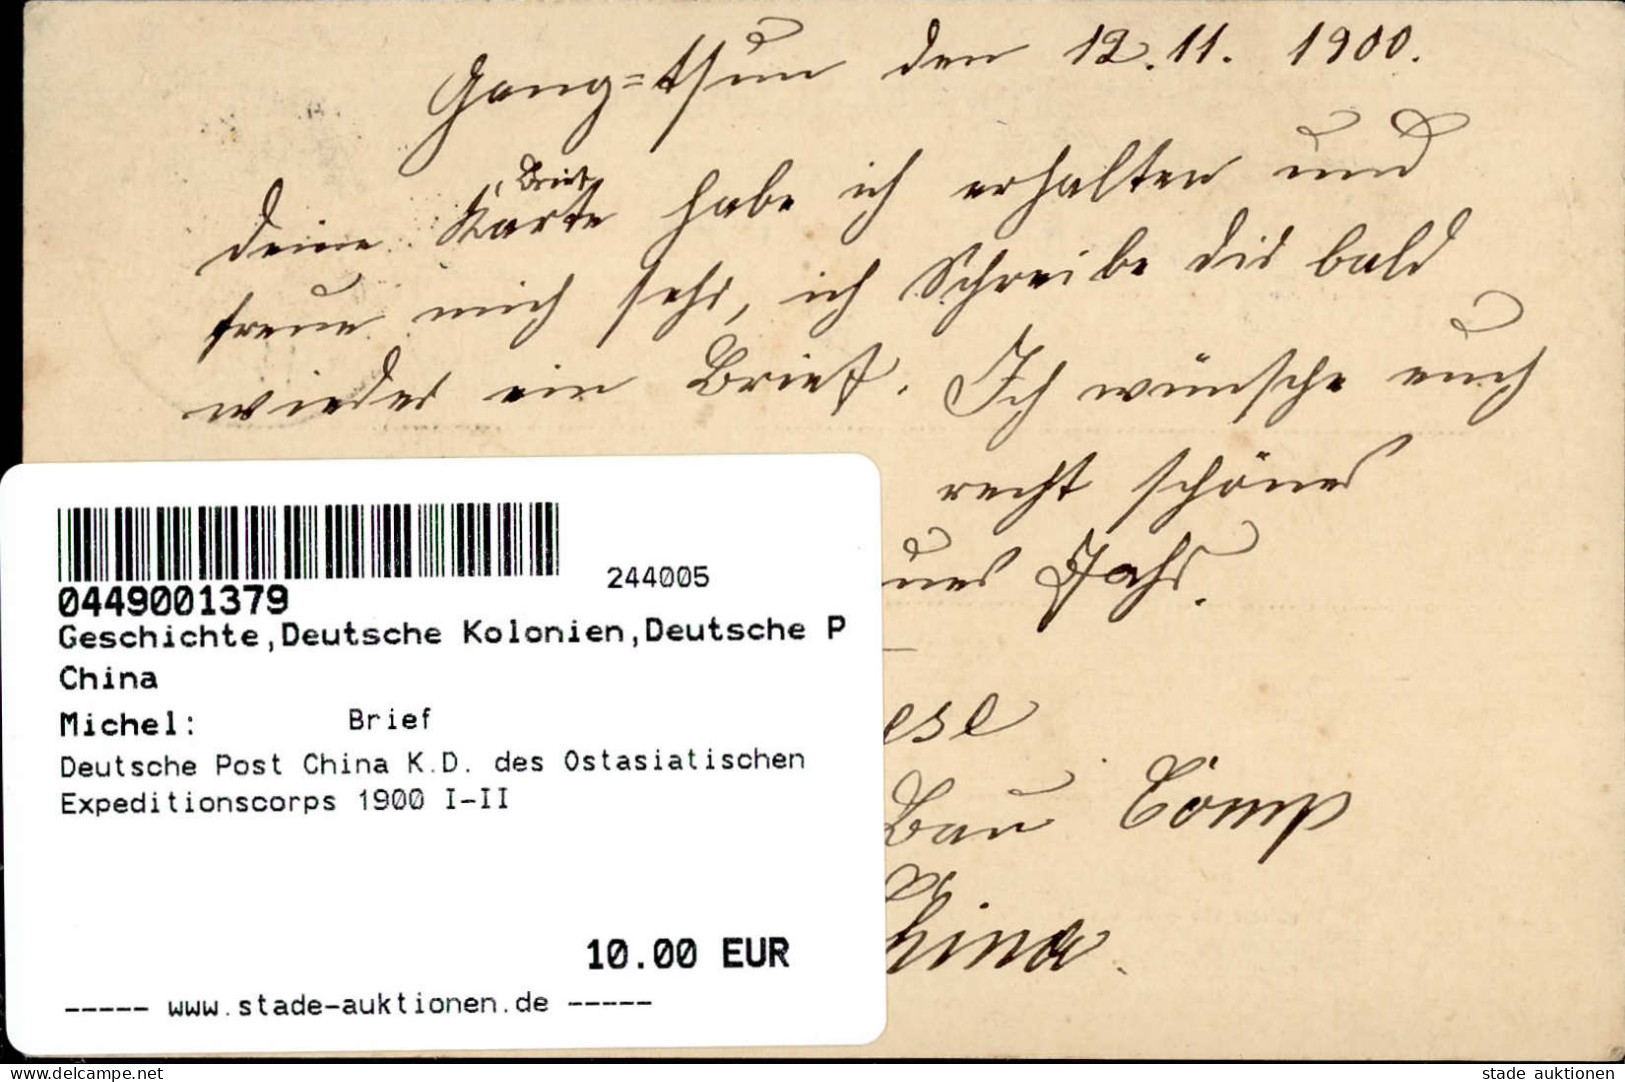 Gang=tsun den 12.11.1900.
Brief
deine Karte habe ich erhalten und
freue mich sehr, ich Schreibe dir bald
wieder ein Brief. Ich wünsche euch
recht schönes
ues Jahr.
ese
Bau Comp
China.
0449001379
244005
Geschichte,Deutsche Kolonien,Deutsche P
China
Michel: Brief
Deutsche Post China K.D. des Ostasiatischen
Expeditionscorps 1900 I-II
10.00 EUR
----- www.stade-auktionen.de -----
www.delcampe.net
stade auktionen